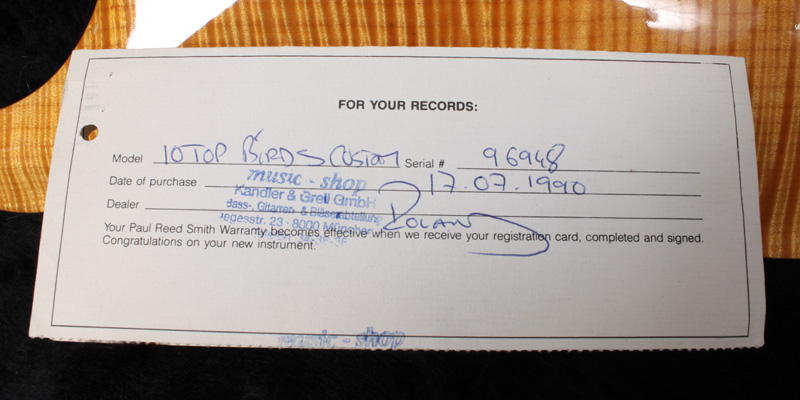 FOR YOUR RECORDS:
Model 10 TOP BIRDS CUSTOM Serial # 96948
Date of purchase 17.07.1990
music - shop
Kandler & Grell GmbH
Dealer
Bass-, Gitarren- & Bläserabteilung
egesstr. 23 · 8000 München
ROLAND
Your Paul Reed Smith Warranty becomes effective when we receive your registration card, completed and signed.
Congratulations on your new instrument.
music - shop